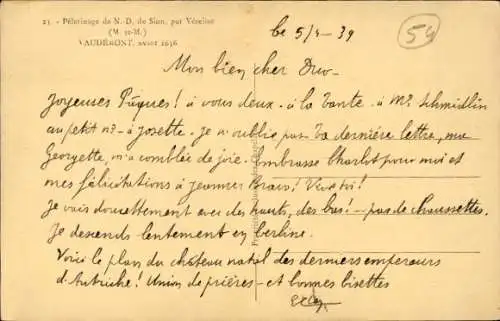 23. - Pèlerinage de N.-D. de Sion, par Vézelise
(M.-et-M.)
VAUDÉMONT, avant 1636
le 5/4 - 39
54
Mon bien cher Duo -
Joyeuses Pâques! à vous deux - à la Tante - à Mr Schmidlin
au petit n° - à Josette - Je n'oublie pas Ta dernière lettre, ma
Georgette, m'a comblée de joie. Embrasse Charlot pour moi et
mes félicitations à Jeanne! Bravo!
Je vais doucettement avec des hauts, des bas! - pas de chaussettes.
Je descends lentement en berline.
Voici le plan du château natal des derniers empereurs
d'Autriche! Union de prières - et bonnes bisettes